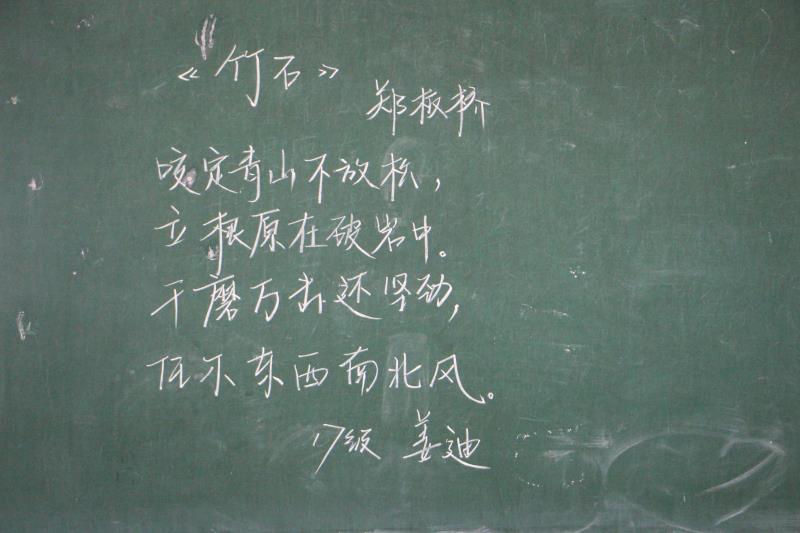 《竹石》
郑板桥
咬定青山不放松，
立根原在破岩中。
千磨万击还坚劲，
任尔东西南北风。
17级 姜迪